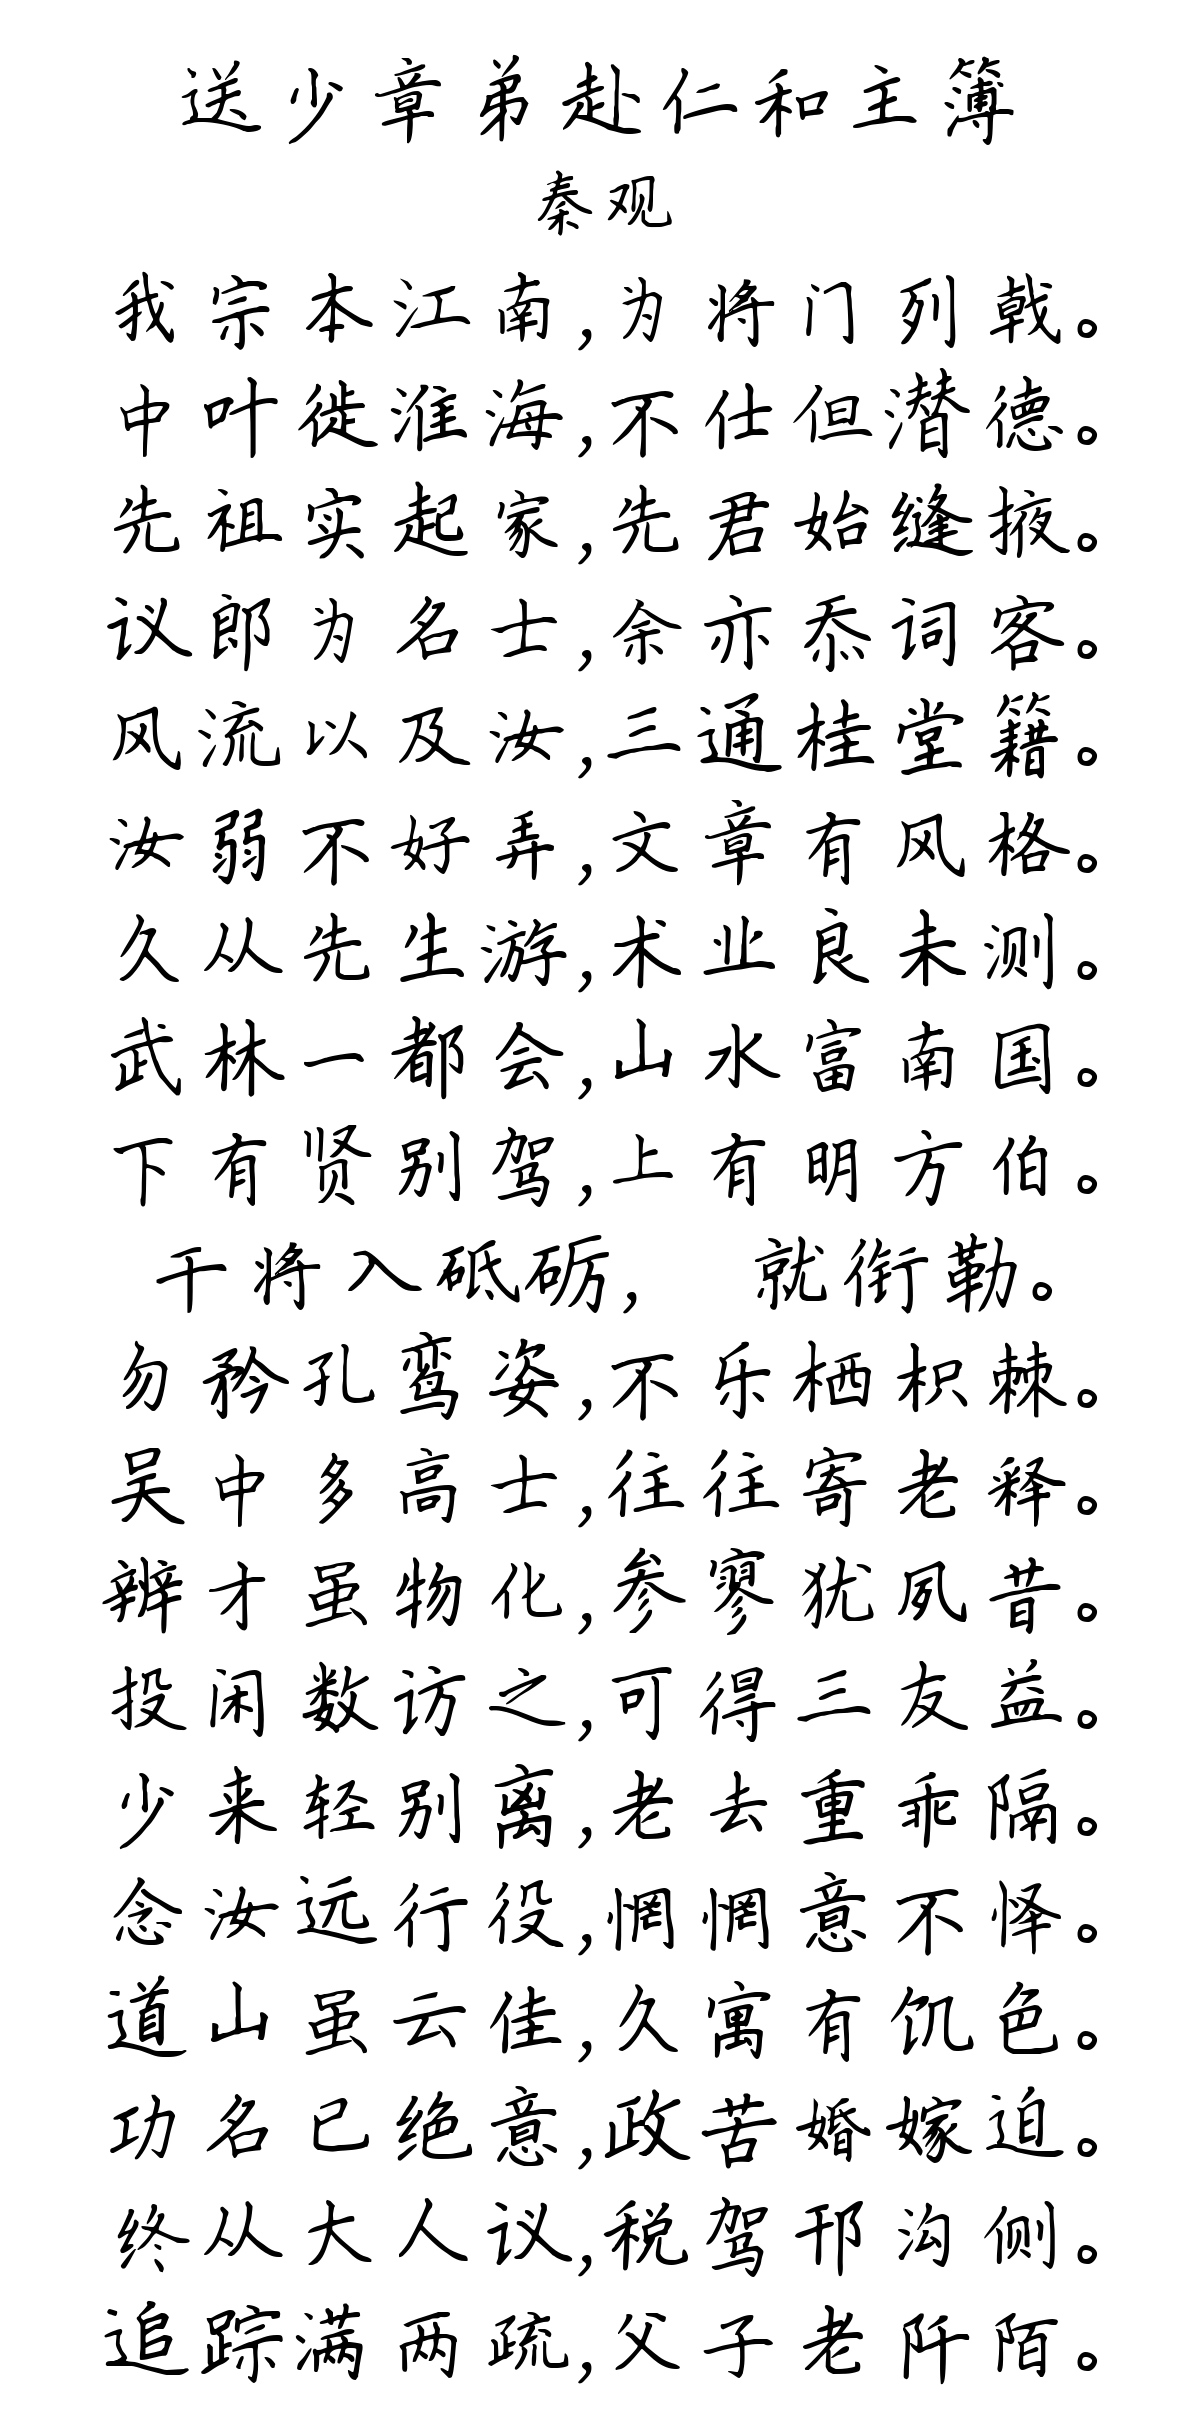 送少章弟赴仁和主簿
秦观
我宗本江南,为将门列戟。
中叶徙淮海,不仕但潜德。
先祖实起家,先君始缝掖。
议郎为名士,余亦忝词客。
风流以及汝,三通桂堂籍。
汝弱不好弄,文章有风格。
久从先生游,术业良未测。
武林一都会,山水富南国。
下有贤别驾,上有明方伯。
干将入砥砺, 就衔勒。
勿矜孔鸾姿,不乐栖枳棘。
吴中多高士,往往寄老释。
辨才虽物化,参寥犹夙昔。
投闲数访之,可得三友益。
少来轻别离,老去重乖隔。
念汝远行役,惘惘意不怿。
道山虽云佳,久寓有饥色。
功名已绝意,政苦婚嫁迫。
终从大人议,税驾邗沟侧。
追踪满两疏,父子老阡陌。